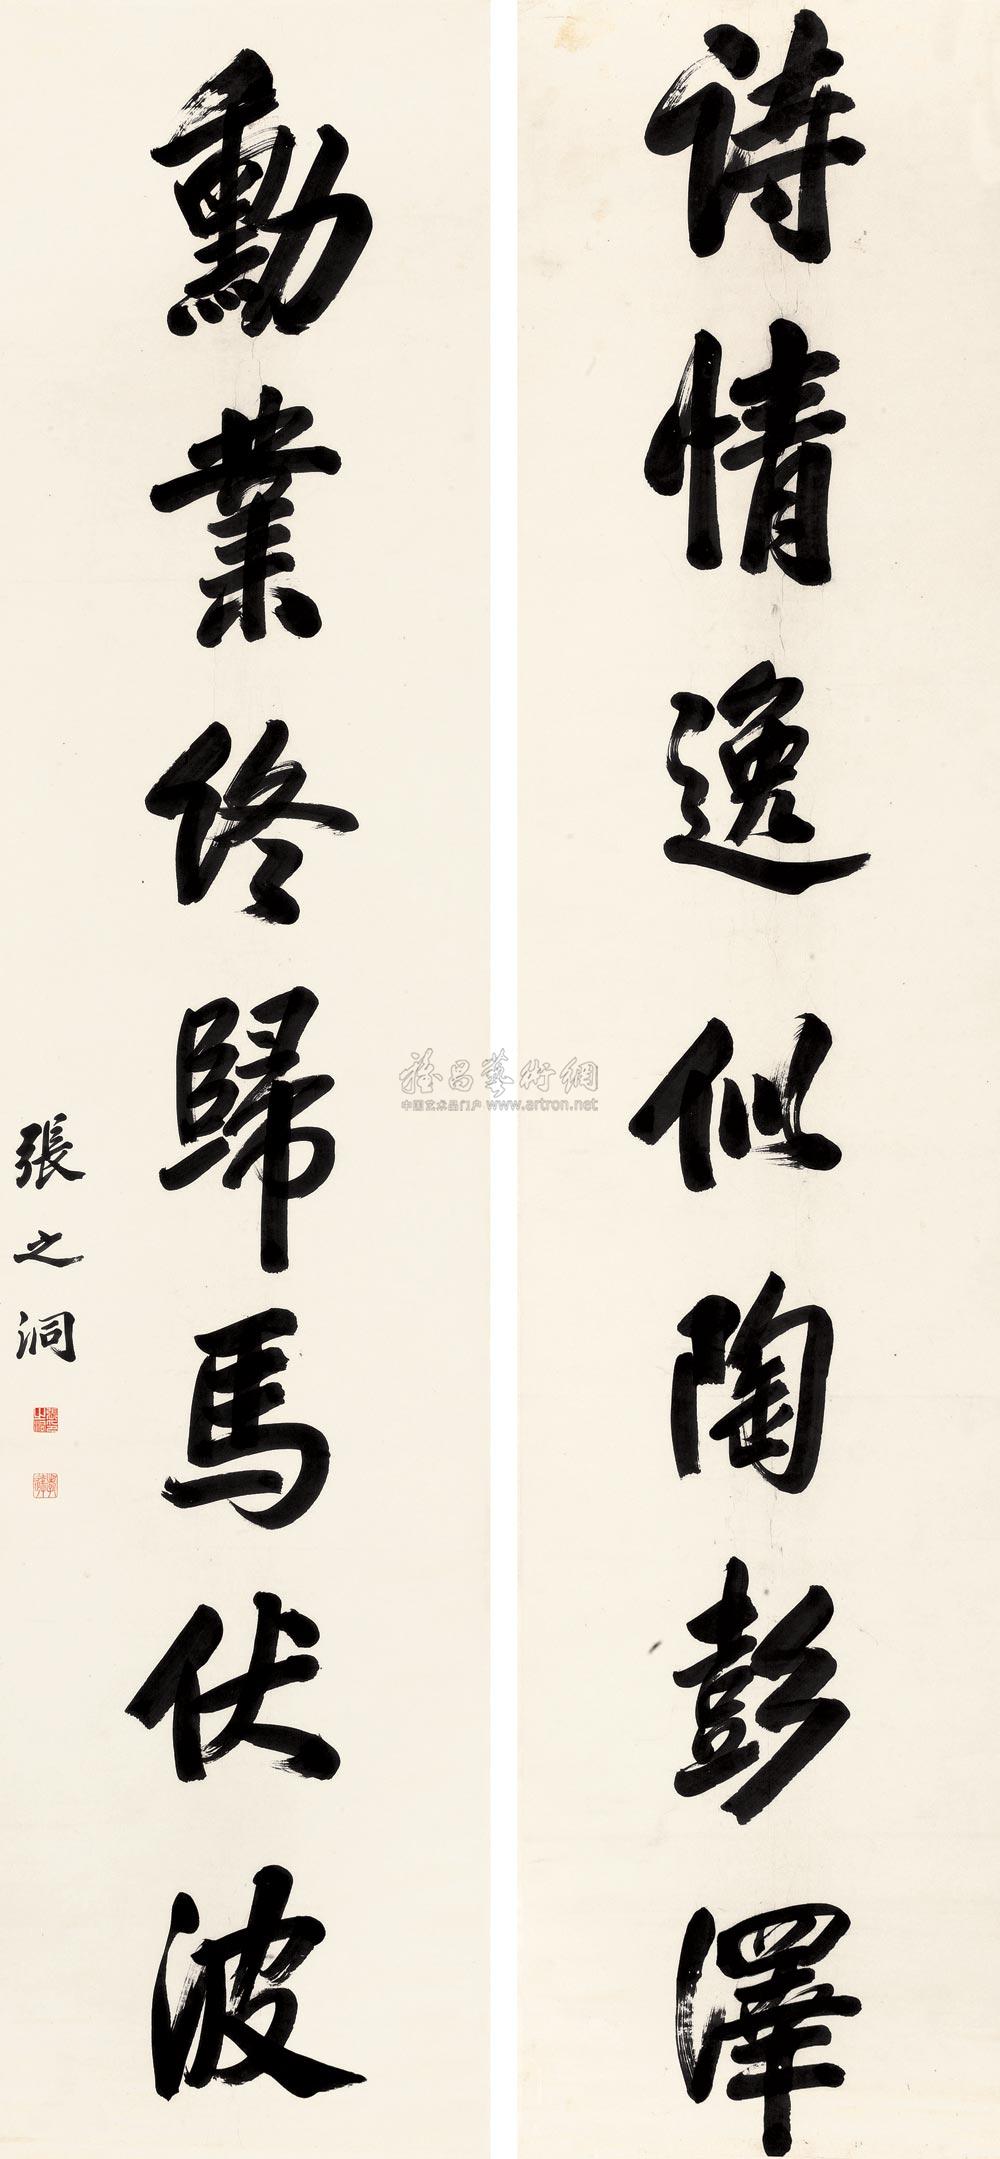 詩情逸似陶彭澤
勳業終歸馬伏波
張之洞
雅昌藝術網
中国艺术品门户 www.artron.net